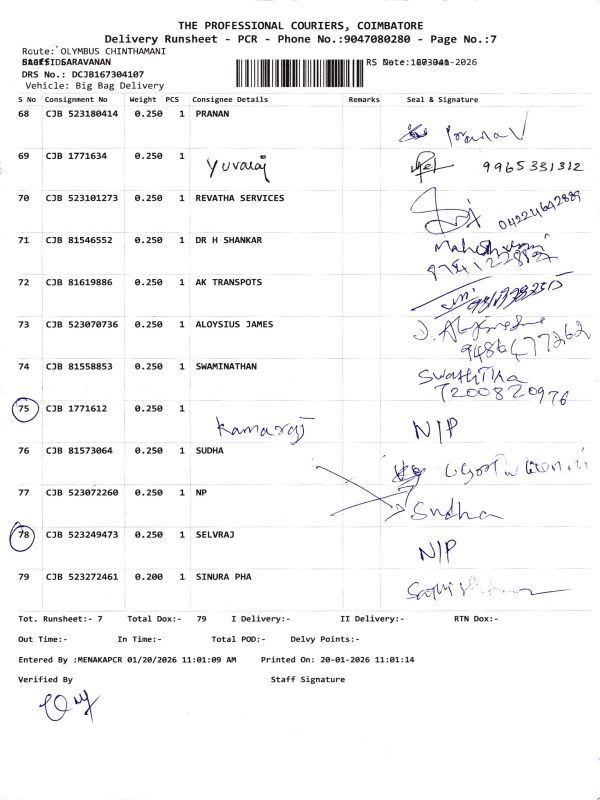 THE PROFESSIONAL COURIERS, COIMBATORE
Delivery Runsheet - PCR - Phone No.:9047080280 - Page No.:7
Route: OLYMBUS CHINTHAMANI
SARAVANAN
DRS No.: DCJB167304107
Vehicle: Big Bag Delivery
S No Consignment No Weight PCS Consignee Details Remarks Seal & Signature
68 CJB 523180414 0.250 1 PRANAN Pranav
69 CJB 1771634 0.250 1 Yuvaraj 9965331312
70 CJB 523101273 0.250 1 REVATHA SERVICES 04224642889
71 CJB 81546552 0.250 1 DR H SHANKAR
72 CJB 81619886 0.250 1 AK TRANSPOTS
73 CJB 523070736 0.250 1 ALOYSIUS JAMES 9486477262
74 CJB 81558853 0.250 1 SWAMINATHAN Swathika
7200820976
75 CJB 1771612 0.250 1 Kamaraj N/P
76 CJB 81573064 0.250 1 SUDHA
77 CJB 523072260 0.250 1 NP Sudha
78 CJB 523249473 0.250 1 SELVRAJ N/P
79 CJB 523272461 0.200 1 SINURA PHA
Tot. Runsheet:- 7 Total Dox:- 79 I Delivery:- II Delivery:- RTN Dox:-
Out Time:- In Time:- Total POD:- Delvy Points:-
Entered By :MENAKAPCR 01/20/2026 11:01:09 AM Printed On: 20-01-2026 11:01:14
Verified By Staff Signature